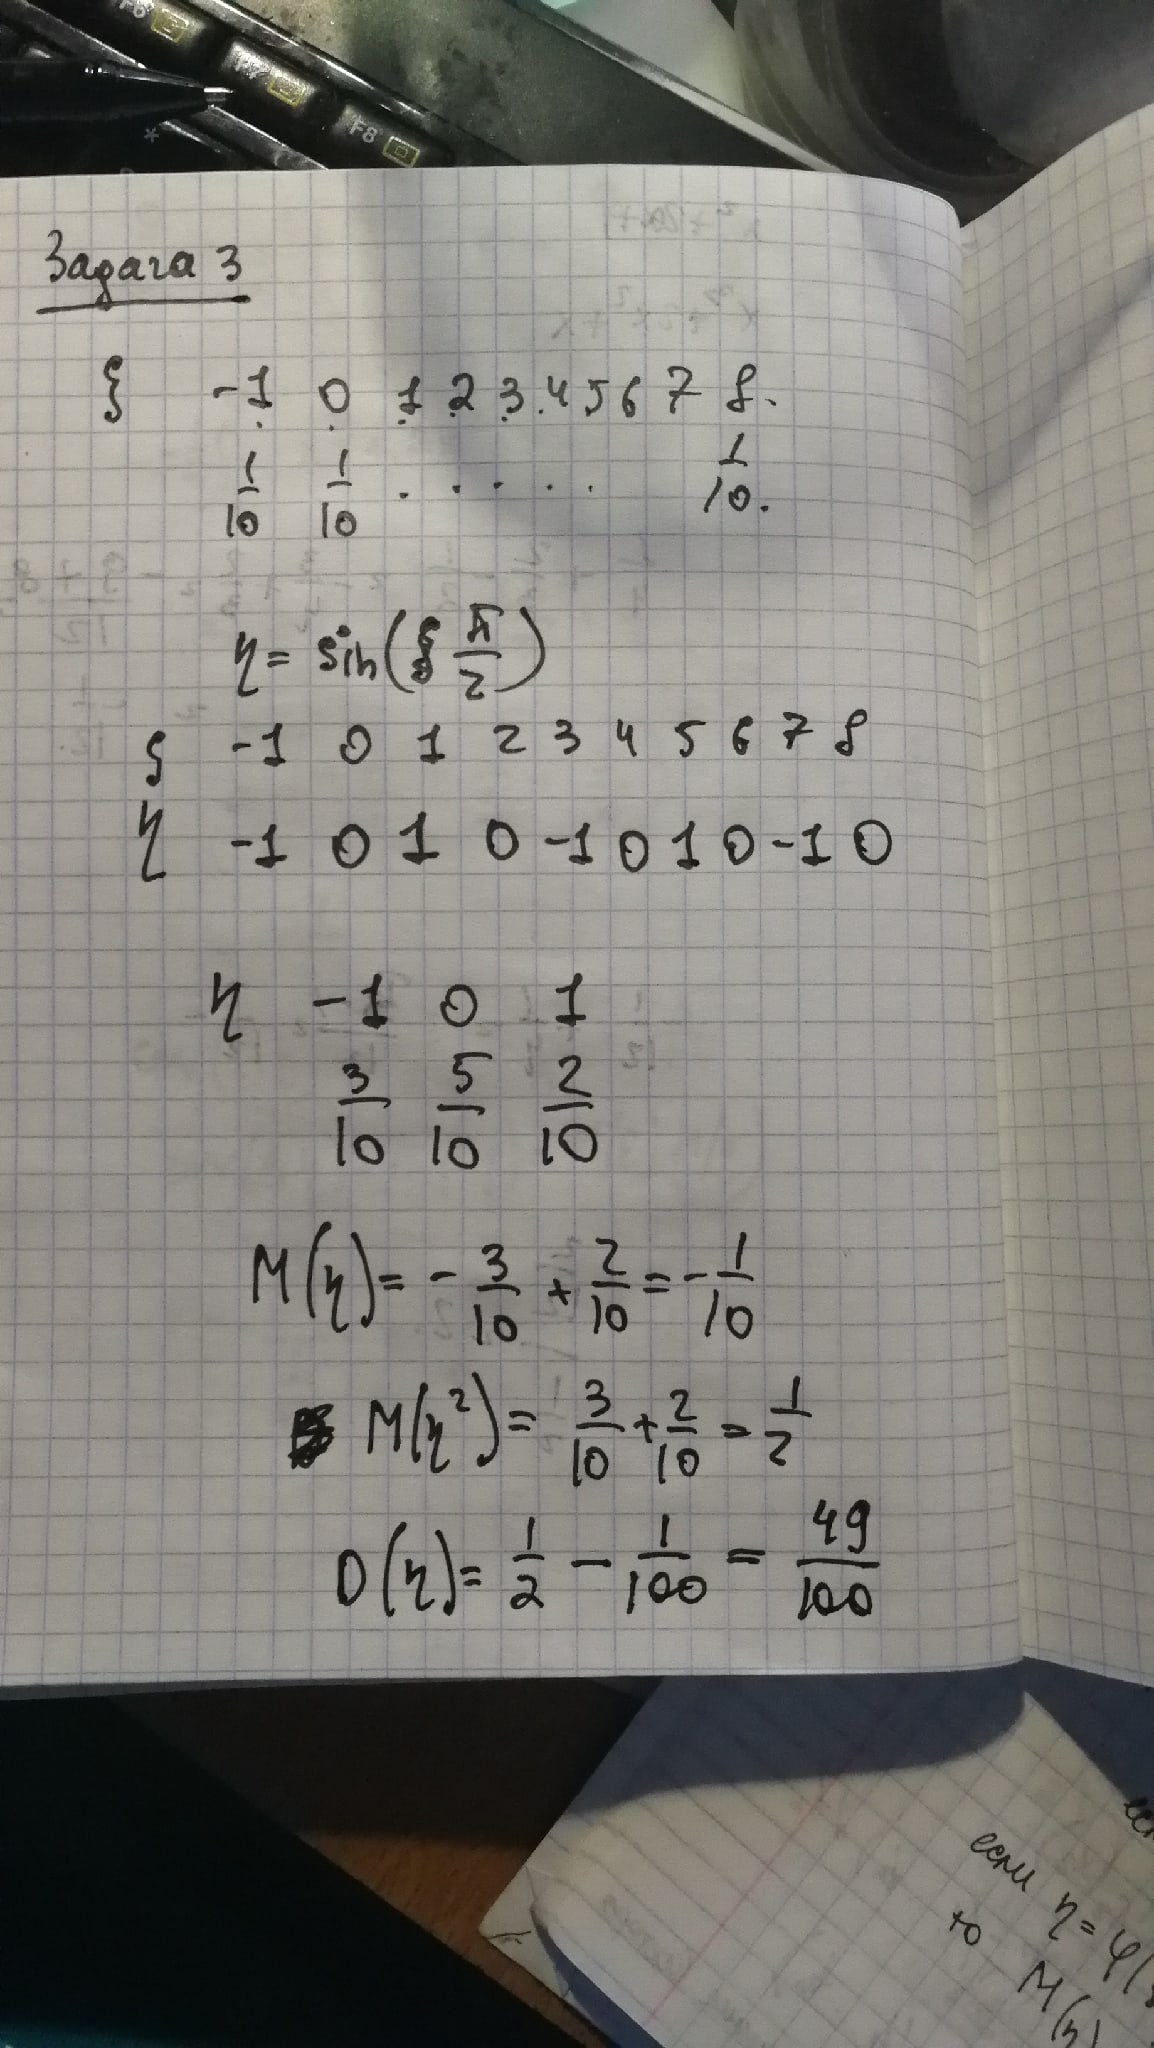 F6
F7
F8
*
Задача 3
ξ -1 0 1 2 3 4 5 6 7 8.
1/10 1/10 . . . . . 1/10.
η = sin(ξ π/2)
ξ -1 0 1 2 3 4 5 6 7 8
η -1 0 1 0 -1 0 1 0 -1 0
η -1 0 1
3/10 5/10 2/10
M(η) = - 3/10 + 2/10 = - 1/10
M(η²) = 3/10 + 2/10 = 1/2
D(η) = 1/2 - 1/100 = 49/100
если η = φ(
то M(η)